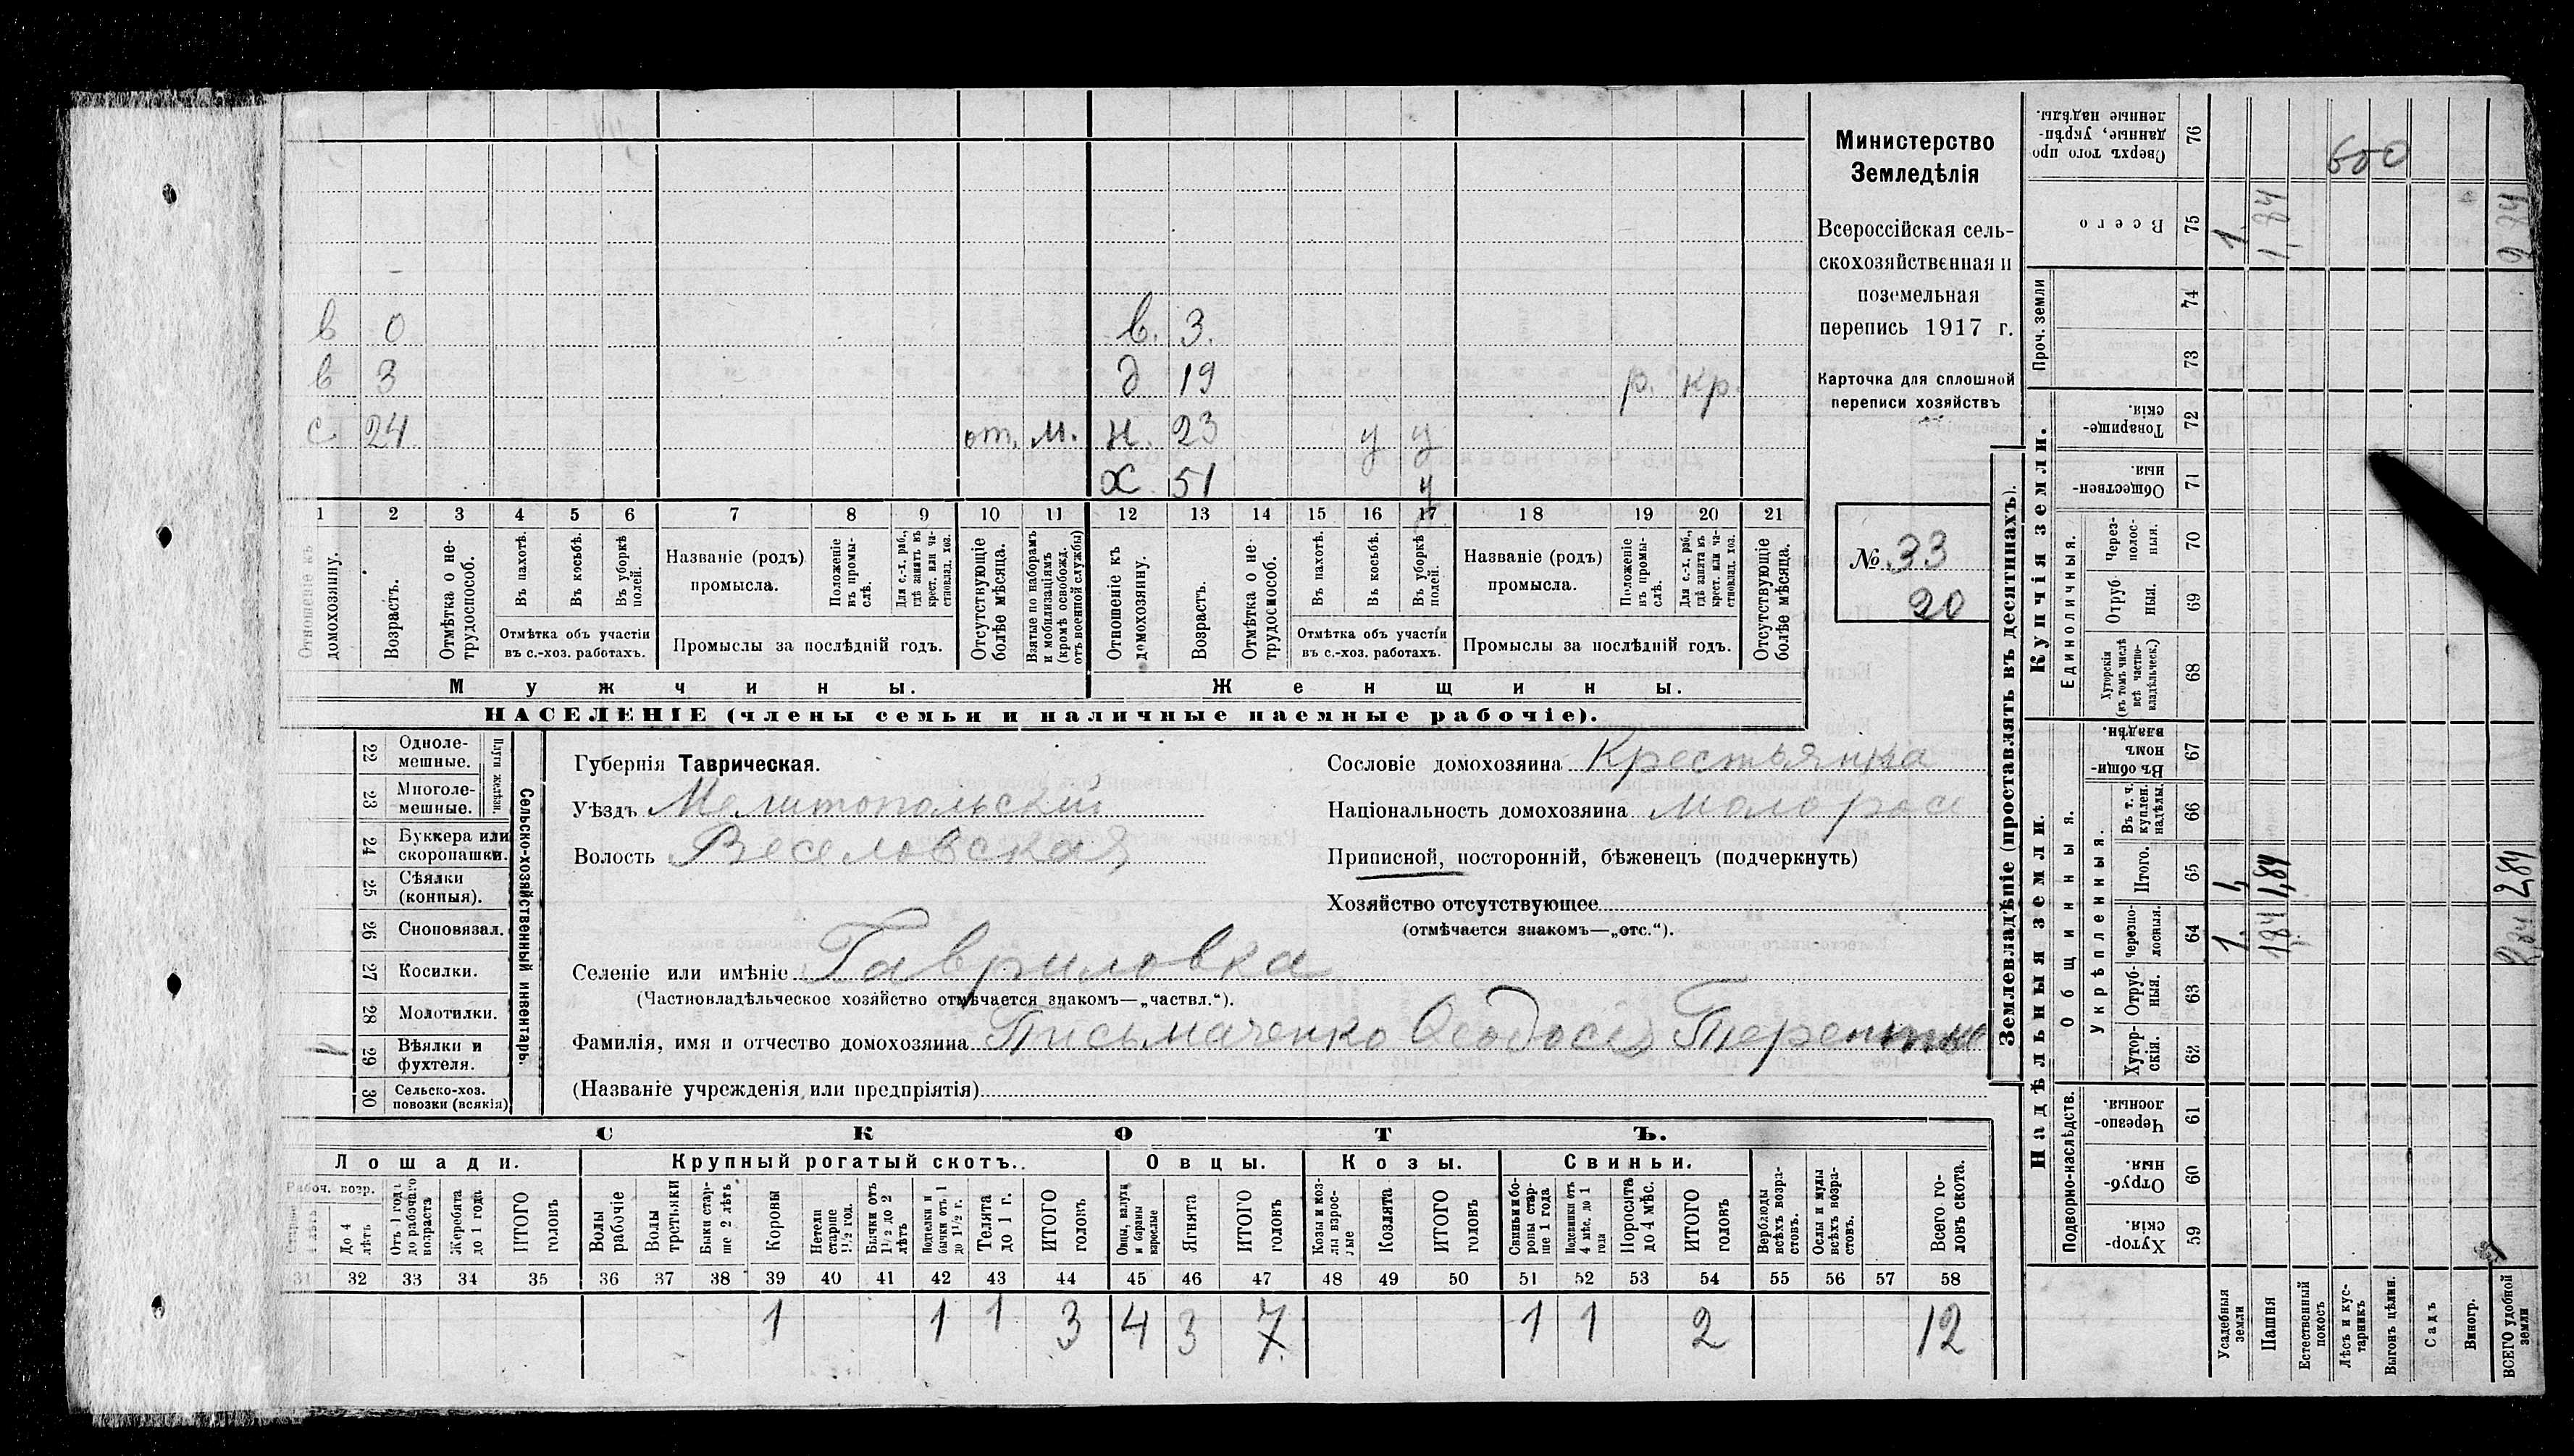 в 0 в. 3.
в 3 д 19 р. кр.
с. 24 от. м. н. 23 у у
х 51 у
1 2 3 4 5 6 7 8 9 10 11 12 13 14 15 16 17 18 19 20 21
Отношеніе къ домохозяину.
Возрастъ.
Отмѣтка о нетрудоспособ.
Въ пахотѣ.
Въ косьбѣ.
Въ уборкѣ полей.
Отмѣтка объ участіи
въ с.-хоз. работахъ.
Названіе (родъ)
промысла.
Положеніе въ промыслѣ.
Для с.-х. раб., гдѣ занятъ въ крест. или частновлад. хоз.
Промыслы за послѣдній годъ.
Отсутствующіе болѣе мѣсяца.
Взятые по наборамъ и мобилизаціямъ (кромѣ освобожд. отъ военной службы)
Отношеніе къ домохозяину.
Возрастъ.
Отмѣтка о нетрудоспособ.
Въ пахотѣ.
Въ косьбѣ.
Въ уборкѣ полей.
Отмѣтка объ участіи
въ с.-хоз. работахъ.
Названіе (родъ)
промысла.
Положеніе въ промыслѣ.
Для с.-х. раб., гдѣ занятъ въ крест. или частновлад. хоз.
Промыслы за послѣдній годъ.
Отсутствующіе болѣе мѣсяца.
Мужчины. Женщины.
НАСЕЛЕНІЕ (члены семьи и наличные наемные рабочіе).
Министерство
Земледѣлія
Всероссійская сель-
скохозяйственная и
поземельная
перепись 1917 г.
Карточка для сплошной
переписи хозяйствъ
№ 33
20
Сельско-хозяйственный инвентарь.
Плуги желѣзн.
22 Одноле-
мешные.
23 Многоле-
мешные.
24 Буккера или
скоропашки.
25 Сѣялки
(конныя).
26 Сноповязал.
27 Косилки.
28 Молотилки.
29 Вѣялки и
фухтеля.
30 Сельско-хоз.
повозки (всякія)
Губернія Таврическая.
Уѣздъ Мелитопольскій
Волость Веселовская
Селеніе или имѣніе Гавриловка
(Частновладѣльческое хозяйство отмѣчается знакомъ—„частвл.“).
Фамилія, имя и отчество домохозяина Письмаченко Ѳеодосія
(Названіе учрежденія или предпріятія)
Сословіе домохозяина Крестьянка
Національность домохозяина малорос
Приписной, посторонній, бѣженецъ (подчеркнуть)
Хозяйство отсутствующее
(отмѣчается знакомъ—„отс.“).
СКОТЪ.
Лошади. Крупный рогатый скотъ. Овцы. Козы. Свиньи.
Рабоч. возр.
До 4 лѣтъ
Отъ 1 года до рабочаго возраста
Жеребята до 1 года
ИТОГО головъ
Волы рабочіе
Волы третьяки
Быки старше 2 лѣтъ
Коровы
Нетели старше 1½ год.
Бычки отъ 1½ до 2 лѣтъ
Подтелки и бычки отъ 1 до 1½ г.
Телята до 1 г.
ИТОГО головъ
Овцы, валухи и бараны взрослые
Ягнята
ИТОГО головъ
Козы и козлы взрослые
Козлята
ИТОГО головъ
Свиньи и боровы старше 1 года
Подсвинки отъ 4 мѣс. до 1 года
Поросята до 4 мѣс.
ИТОГО головъ
Верблюды всѣхъ возрастовъ.
Ослы и мулы всѣхъ возрастовъ.
Всего головъ скота.
31 32 33 34 35 36 37 38 39 40 41 42 43 44 45 46 47 48 49 50 51 52 53 54 55 56 57 58
1 1 1 3 4 3 7 1 1 2 12
Землевладѣніе (проставлять въ десятинахъ).
Надѣльныя земли. Купчія земли.
Проч. земли
Подворно-наслѣдств.
Общинныя.
Укрѣпленныя.
Единоличныя.
76 Сверхъ того проданные, укрѣпленные надѣлы.
600
75 Всего 1, 1,84 2,84
74
73
72 Товарищескія.
71 Общественныя.
70 Черезполосныя.
69 Отрубныя.
68 Хуторскія (въ томъ числѣ всѣ частновладѣльческ.)
67 Въ общинномъ владѣн.
66 Въ т. ч. куплен. надѣлы.
65 Итого. 1, 1,84 2,84
64 Черезполосныя. 1, 1,84 2,84
63 Отрубныя.
62 Хуторскія.
61 Черезполосныя.
60 Отрубныя.
59 Хуторскія.
Усадебныя земли
Пашня
Естественный покосъ
Лѣсъ и кустарникъ
Выгонъ цѣлин.
Садъ
Виногр.
ВСЕГО удобной земли